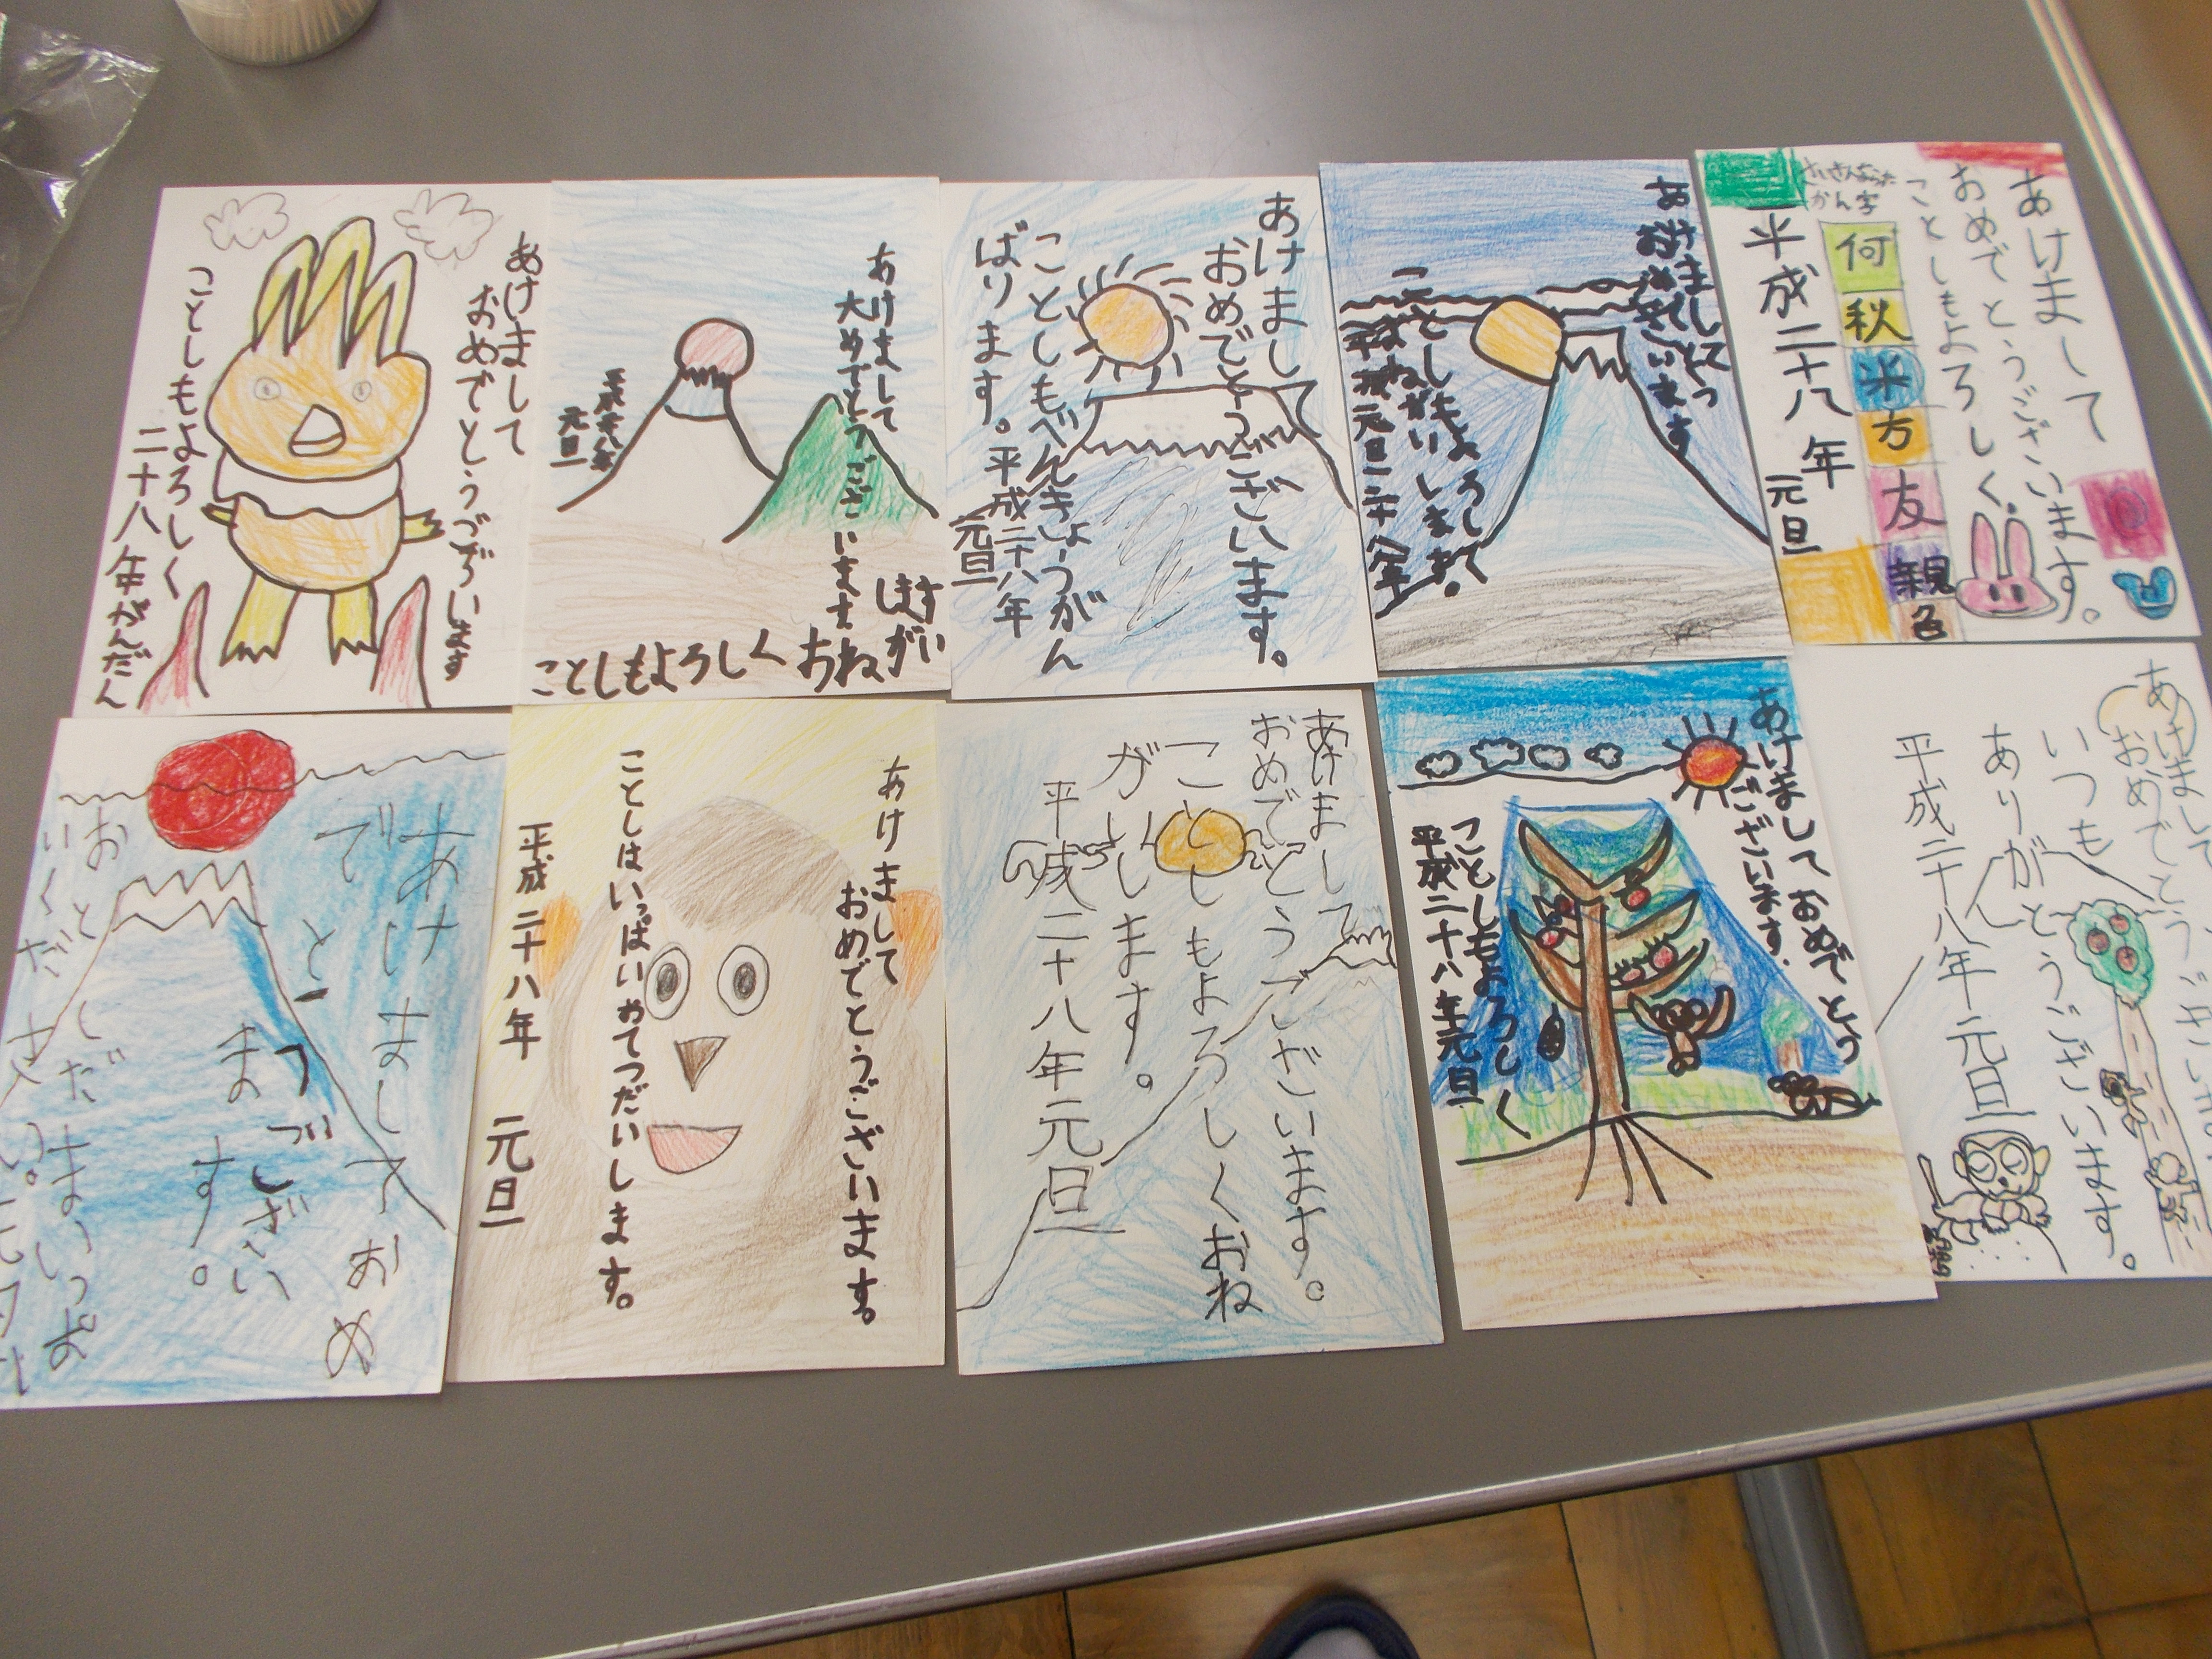 あけまして
おめでとうございます
ことしもよろしく
二十八年がんだん
あけまして
大めでとうございます
ことしもよろしくおねがい
します
平成二十八年
元旦
あけまして
おめでとうございます。
ことしもべんきょうがん
ばります。
平成二十八年
元旦
あけまして
ことしもよろしくて
元旦二十八年
あけまして
おめでとうございます。
ことしもよろしく。
かん字
何
秋
米
方
友
親
名
平成二十八年
元旦
あけましておめ
でとうござい
ます。
おとしだまいっぱ
いください。
あけまして
おめでとうございます。
ことしはいっぱいおてつだいします。
平成二十八年 元旦
あけまして
おめでとうございます。
ことしもよろしくおね
がいします。
平成二十八年元旦
あけましておめでとう
ございます。
ことしもよろしく
平成二十八年元旦
あけまして
おめでとうございます。
いつも
ありがとうございます。
平成二十八年元旦